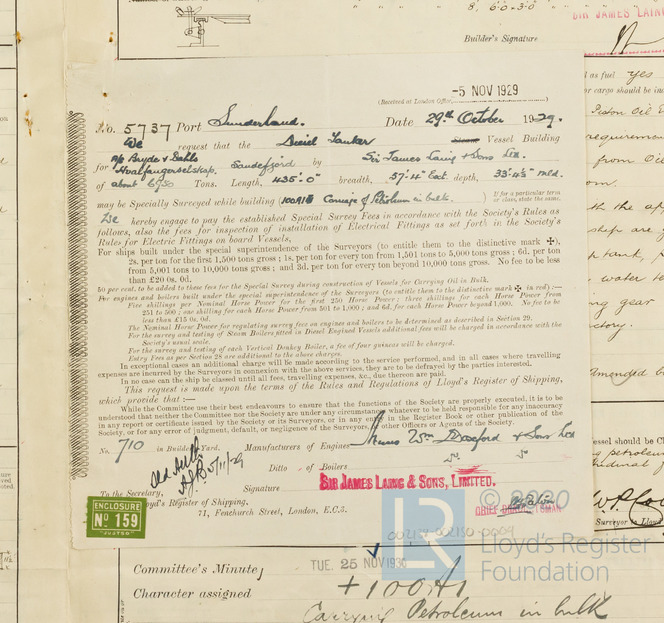 8, 6·0 × 3·0
SIR JAMES LAING
Builder's Signature
-5 NOV 1929
(Received at London Office
No. 5737 Port Sunderland. Date 29th October 1929.
We request that the Diesel Tanker Steam Vessel Building
for A/S Bryde & Dahls Hvalfangerselskap, Sandefjord by Sir James Laing & Sons Ltd.
of about 6750 Tons. Length, 435'-0" breadth, 57'-4" Ext. depth, 33'-4½" mld.
may be Specially Surveyed while building (100A1 Carriage of Petroleum in bulk. ) If for a particular term or class, state the same.
We hereby engage to pay the established Special Survey Fees in accordance with the Society's Rules as
follows, also the fees for inspection of installation of Electrical Fittings as set forth in the Society's
Rules for Electric Fittings on board Vessels,
For ships built under the special superintendence of the Surveyors (to entitle them to the distinctive mark ✠).
2s. per ton for the first 1,500 tons gross ; 1s. per ton for every ton from 1,501 to 5,000 tons gross ; 6d. per ton
from 5,001 tons to 10,000 tons gross ; and 3d. per ton for every ton beyond 10,000 tons gross. No fee to be less
than £20 0s. 0d.
10 per cent. to be added to these fees for the Special Survey during construction of Vessels for Carrying Oil in Bulk.
For engines and boilers built under the special superintendence of the Surveyors (to entitle them to the distinctive mark ✠ in red) :—
Five shillings per Nominal Horse Power for the first 250 Horse Power ; three shillings for each Horse Power from
251 to 500 ; one shilling for each Horse Power from 501 to 1,000 ; and 6d. for each Horse Power beyond 1,000. No fee to be
less than £15 0s. 0d.
The Nominal Horse Power for regulating survey fees on engines and boilers to be determined as described in Section 29.
For the survey and testing of Steam Boilers fitted in Diesel Engined Vessels additional fees will be charged in accordance with the
Society's usual scale.
For the survey and testing of each Vertical Donkey Boiler, a fee of four guineas will be charged.
Entry Fees as per Section 28 are additional to the above charges.
In exceptional cases an additional charge will be made according to the service performed, and in all cases where travelling
expenses are incurred by the Surveyors in connexion with the above services, they are to be defrayed by the parties interested.
In no case can the ship be classed until all fees, travelling expenses, &c., due thereon are paid.
This request is made upon the terms of the Rules and Regulations of Lloyd's Register of Shipping,
which provide that :—
While the Committee use their best endeavours to ensure that the functions of the Society are properly executed, it is to be
understood that neither the Committee nor the Society are under any circumstances whatever to be held responsible for any inaccuracy
in any report or certificate issued by the Society or its Surveyors, or in any entry in the Register Book or other publication of the
Society, or for any error of judgment, default, or negligence of the Surveyors, or other Officers or Agents of the Society.
No. 710 in Builders' Yard. Manufacturers of Engines Messrs Wm Doxford & Sons Ltd
Ditto of Boilers
Signature
SIR JAMES LAING & SONS, LIMITED.
To the Secretary,
Lloyd's Register of Shipping,
71, Fenchurch Street, London, E.C.3.
ENCLOSURE
No 159
"JUSTSO"
© 2020
CHIEF DRAUGHTSMAN
002122-002130-0009
LR
Lloyd's Register
Foundation
Committee's Minute
TUE. 25 NOV 1930
Character assigned
+100A1
Carrying Petroleum in bulk
as fuel yes
Piston Oil
Surveyor to Lloyd